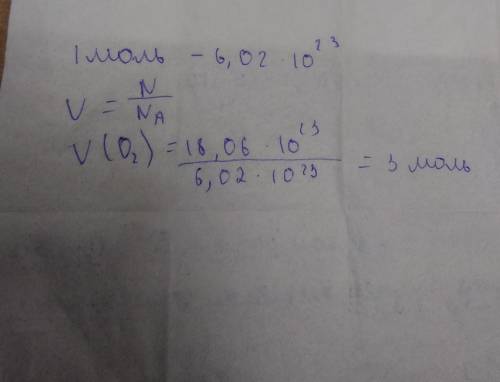 1 моль - 6,02 · 10²³
V = N / N_A
V(O₂) = 18,06 · 10²³ / 6,02 · 10²³ = 3 моль